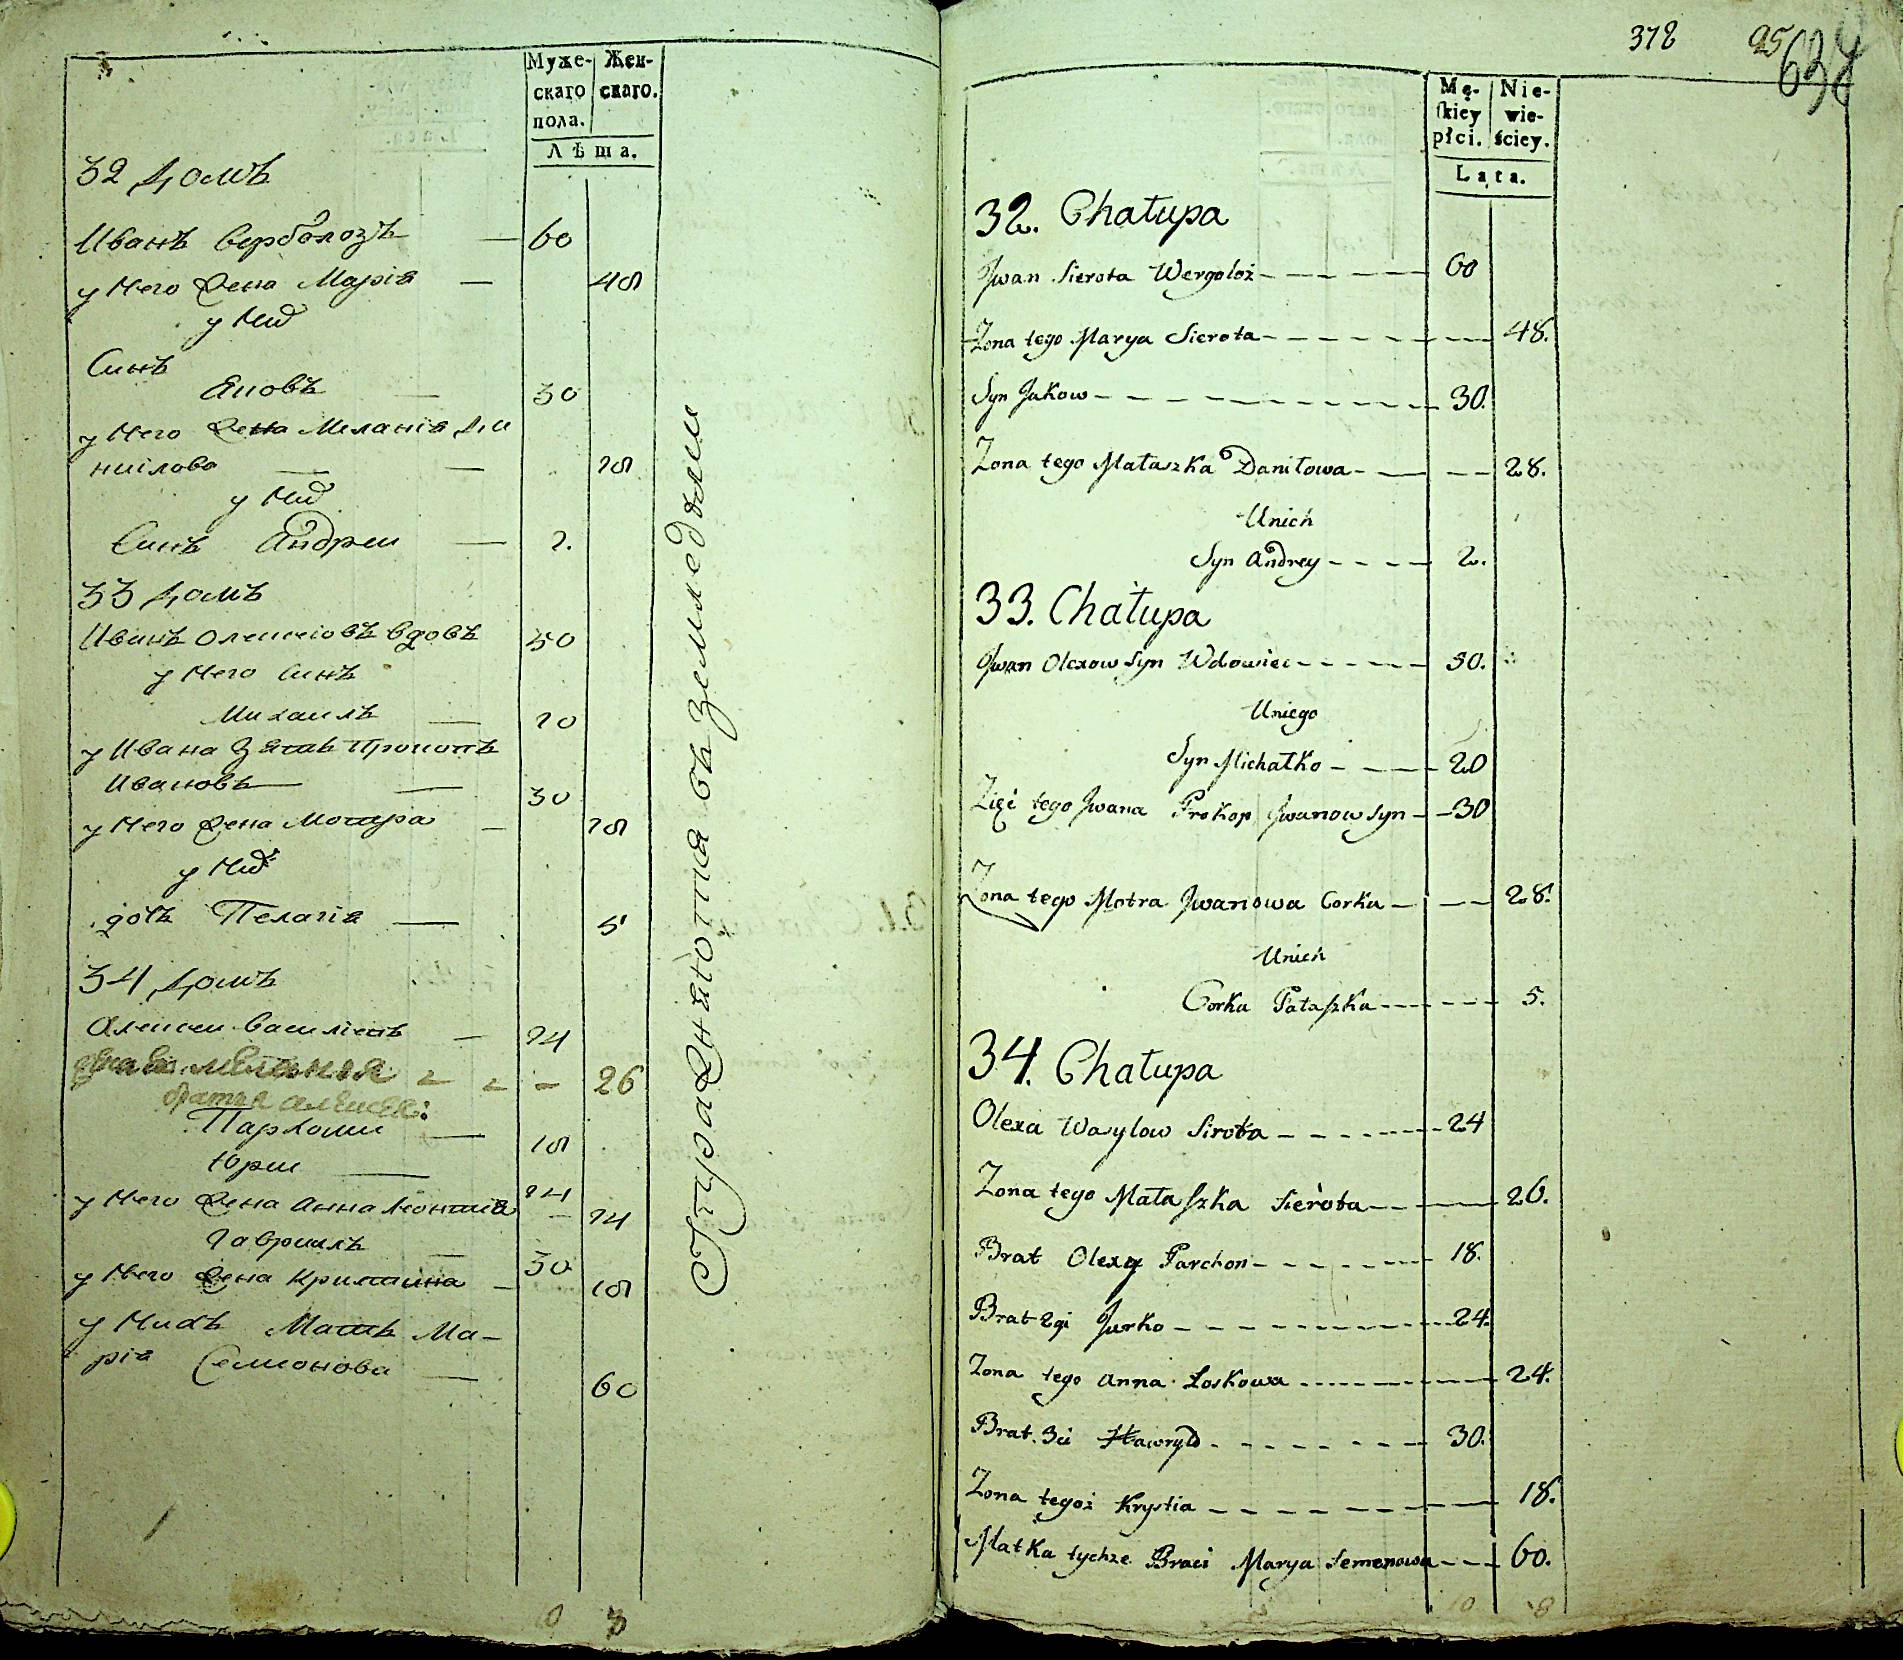 Муже-
скаго
пола.
Жен-
скаго.
Лѣта.
32 домъ
Иванъ Верболозъ — 60
у него жена Марія — 48
у них
Синъ
Яковъ — 30
у него жена Меланія Да
нилова — 28
у них
Синъ Андреи — 2.
33 домъ
Иванъ Олексіовъ вдовъ 50
у него синъ
Михаилъ — 20
у Ивана зять Прокопъ
Ивановъ — 30
у него жена Мотра — 28
у них
дочъ Пелагія — 5
34 домъ
Алексеи Василіевъ — 24
жена его Меланія — 26
братья Алексея:
Пархоми — 18
Юрии — 24
у него жена Анна Леонтіа — 24
Гавриилъ — 30
у него жена Кристина — 18
у нихъ Мать Ма-
рія Семионова — 60
Упражняются въ земледѣлии
10 8
378 95 638
Mę-
skiey
płci.
Nie-
wie-
ściey.
Lata.
32. Chałupa
Jwan Sierota Wergoloz - - - 60
Zona tego Marya Sierota - - - 48.
Syn Jakow - - - 30.
Zona tego Małaszka Daniłowa - - - 28.
Unich
Syn Andrey - - - 2.
33. Chałupa
Jwan Olexow Syn Wdowiec - - - 50.
Uniego
Syn Michałko - - - 20
Zięć tego Jwana Prokop Jwanow Syn - - 30
Zona tego Motra Jwanowa Corka - - - 28.
Unich
Corka Pałaszka - - - 5.
34. Chałupa
Olexa Wasylow Sirota - - - 24
Zona tego Małaszka Sierota - - - 26.
Brat Olexy Parchon - - - 18.
Brat 2gi Jurko - - - 24.
Zona tego Anna Loskowa - - - 24.
Brat 3ci Hawryło - - - 30.
Zona tegoż Krystia - - - 18.
Matka tychże Braci Marya Semenowa - - - 60.
10 8